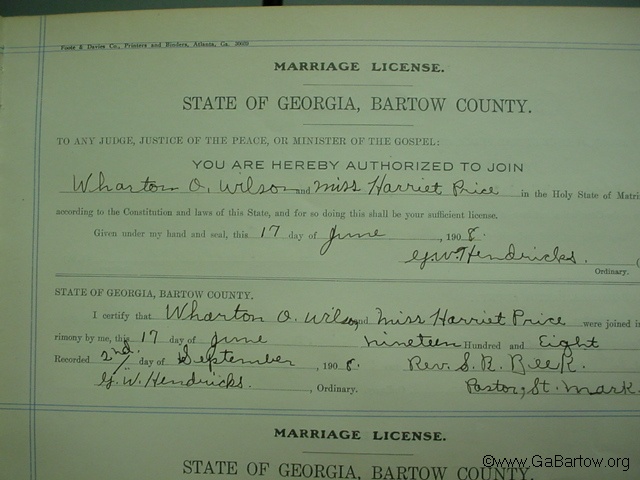 Foote & Davies Co., Printers and Binders, Atlanta, Ga.
MARRIAGE LICENSE.
STATE OF GEORGIA, BARTOW COUNTY.
TO ANY JUDGE, JUSTICE OF THE PEACE, OR MINISTER OF THE GOSPEL:
YOU ARE HEREBY AUTHORIZED TO JOIN
Wharton O. Wilson and Miss Harriet Price in the Holy State of Matri
according to the Constitution and laws of this State, and for so doing this shall be your sufficient license.
Given under my hand and seal, this 17 day of June, 1908.
G.W. Hendricks.
Ordinary.
STATE OF GEORGIA, BARTOW COUNTY.
I certify that Wharton O. Wilson and Miss Harriet Price were joined i
rimony by me, this 17 day of June nineteen Hundred and Eight
Recorded 2nd. day of September, 1908. Rev. S. R.
G. W. Hendricks., Ordinary. Pastor, St. Mark
MARRIAGE LICENSE.
STATE OF GEORGIA, BARTOW COUNTY.
©www.GaBartow.org